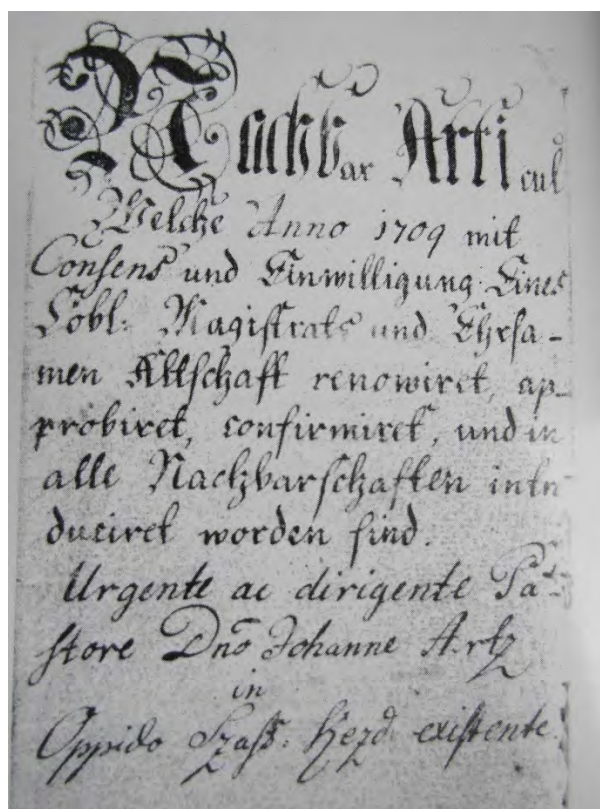 Nachbar Articul
Welche Anno 1709 mit
Consens und Einwilligung Eines
Löbl: Magistrats und Ehrsa-
men Altschafft renowiret, ap-
probiret, confirmiret, und in
alle Nachbarschafften intro
duciret worden sind.
Urgente ac dirigente Pa-
store Dnō Johanne Artz
in
Oppido Szasz: Kezd existente.